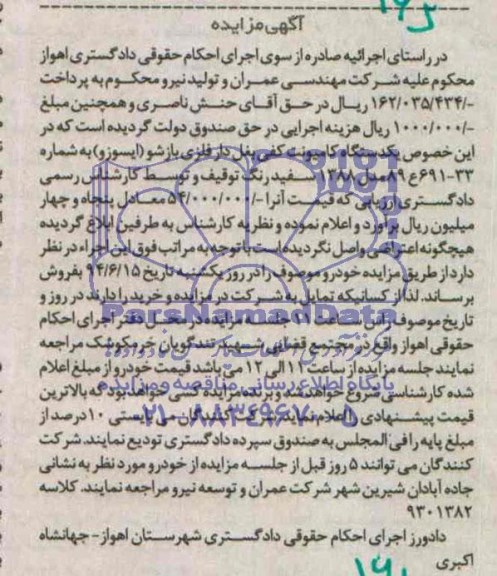 ۱۹۵
آگهی مزایده
در راستای اجرائیه صادره از سوی اجرای احکام حقوقی دادگستری اهواز
محکوم علیه شرکت مهندسی عمران و تولید نیرو محکوم به پرداخت
-/۱۶۲/۰۳۵/۴۳۴ ریال در حق آقای حنش ناصری و همچنین مبلغ
-/۱۰۰۰/۰۰۰ ریال هزینه اجرایی در حق صندوق دولت گردیده است که در
این خصوص یکدستگاه کامیونت کفی بغل دار فلزی بازشو (ایسوزو) به شماره
۳۳-۶۹۱ع۸۹ مدل ۱۳۸۸ سفید رنگ توقیف و توسط کارشناس رسمی
دادگستری ارزیابی که قیمت آنرا -/۵۴/۰۰۰/۰۰۰ معادل پنجاه و چهار
میلیون ریال برآورد و اعلام نموده و نظریه کارشناس به طرفین ابلاغ گردیده
هیچگونه اعتراضی واصل نگردیده است با توجه به مراتب فوق این اجراء در نظر
دارد از طریق مزایده خودرو موصوف را در روز یکشنبه تاریخ ۹۴/۶/۱۵ بفروش
برساند. لذا از کسانیکه تمایل به شرکت در مزایده و خرید را دارند در روز و
تاریخ موصوف راس ساعت ۱۱ جلسه مزایده در محل دفتر اجرای احکام
حقوقی اهواز واقع در مجتمع قضایی شهید تندگویان خرمکوشک مراجعه
نمایند جلسه مزایده از ساعت ۱۱ الی ۱۲ می باشد قیمت خودرو از مبلغ اعلام
شده کارشناسی شروع خواهد شد و برنده مزایده کسی خواهد بود که بالاترین
قیمت پیشنهادی را اعلام نماید شرکت کنندگان می بایستی ۱۰ درصد از
مبلغ پایه را فی المجلس به صندوق سپرده دادگستری تودیع نمایند. شرکت
کنندگان می توانند ۵ روز قبل از جلسه مزایده از خودرو مورد نظر به نشانی
جاده آبادان شیرین شهر شرکت عمران و توسعه نیرو مراجعه نمایند. کلاسه
۹۳۰۱۳۸۲
دادورز اجرای احکام حقوقی دادگستری شهرستان اهواز- جهانشاه
اکبری
ParsNamadData
پایگاه اطلاع رسانی مناقصه و مزایده
۰۲۱-۸۸۳۴۹۶۷۰